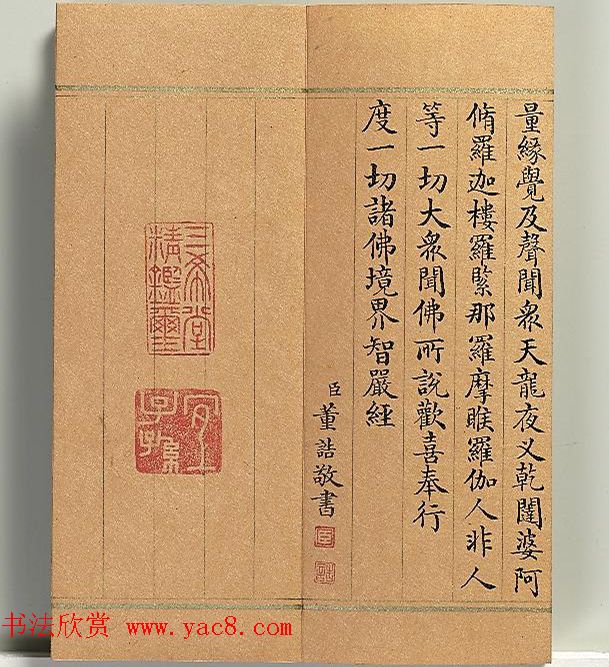 量緣覺及聲聞眾天龍夜乂乾闥婆阿
脩羅迦樓羅緊那羅摩睺羅伽人非人
等一切大眾聞佛所說歡喜奉行
度一切諸佛境界智嚴經
臣董誥敬書
三希堂
精鑑璽
宜
子孫
书法欣赏 www.yac8.com